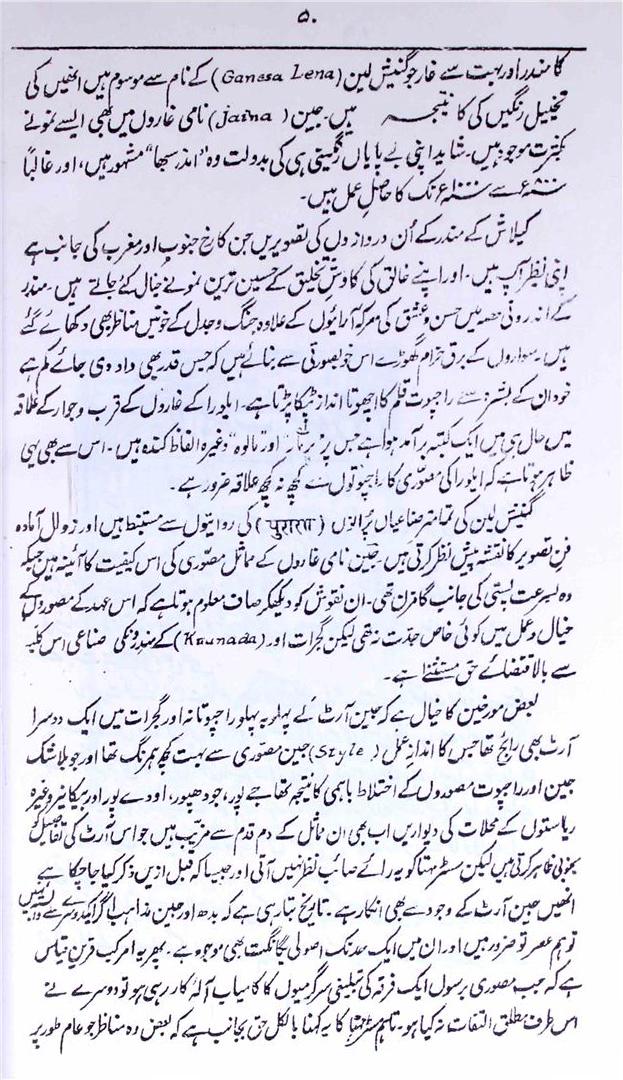 ۵۰
کا مندر اور بہت سے غار جو گنیش لین (Ganesa Lena) کے نام سے موسوم ہیں انھیں کی
تخیل رنگیں کی کا نتیجہ ہیں۔ جین (Jaina) نامی غاروں میں بھی ایسے نمونے
بکثرت موجود ہیں۔ شاید اپنی بے پایاں رنگینی ہی کی بدولت وہ "اندر سبھا" مشہور ہیں، اور غالباً
۸۰۰ء سے ۱۰۰۰ء تک کا حاصل عمل ہیں۔
کیلاش کے مندر کے اُن دروازوں کی تصویریں جن کا رخ جنوب اور مغرب کی جانب ہے
اپنی نظیر آپ ہیں۔ اور اپنے خالق کی کاوشِ تخلیق کے حسین ترین نمونے خیال کئے جاتے ہیں۔ مندر
کے اندرونی حصہ میں حسن و عشق کی معرکہ آرائیوں کے علاوہ جنگ و جدل کے خونیں مناظر بھی دکھائے گئے
ہیں۔ سواروں کے برق خرام گھوڑے اس خوبصورتی سے بنائے ہیں کہ جس قدر بھی داد دی جائے کم ہے
خود ان کے بشرے سے راجپوت قلم کا اچھوتا انداز ٹپکا پڑتا ہے۔ ایلورا کے غاروں کے قرب و جوار کے علاقہ
میں حال ہی میں ایک کتبہ برآمد ہوا ہے جس پر "پرمار" اور "مالوہ" وغیرہ الفاظ کندہ ہیں۔ اس سے بھی یہی
ظاہر ہوتا ہے کہ ایلورا کی مصوّری کا راجپوتوں سے کچھ نہ کچھ علاقہ ضرور ہے۔
گنیش لین کی تمامتر صناعیاں پُرانوں (पुराण) کی روایتوں سے مستنبط ہیں اور زوال آمادہ
فنِ تصویر کا نقشہ پیش نظر کرتی ہیں۔ جین نامی غاروں کے مماثل مصوّری کی اس کیفیت کا آئینہ ہیں جبکہ
وہ بسرعت پستی کی جانب گامزن تھی۔ ان نقوش کو دیکھکر صاف معلوم ہوتا ہے کہ اس عہد کے مصوروں کے
خیال و عمل میں کوئی خاص جدّت نہ تھی لیکن گجرات اور (Knunada) کے مندرونکی صناعی اس کلیہ
سے بالاقتضائے حق مستثنےٰ ہے۔
بعض مورخین کا خیال ہے کہ جین آرٹ کے پہلو بہ پہلو راجپوتانہ اور گجرات میں ایک دوسرا
آرٹ بھی رائج تھا جس کا اندازِ عمل (Style) جین مصوّری سے بہت کچھ ہمرنگ تھا اور جو بلا شک
جین اور راجپوت مصوروں کے اختلاط باہمی کا نتیجہ تھا جے پور، جودھپور، اودے پور اور بیکانیر وغیرہ
ریاستوں کے محلات کی دیواریں اب بھی ان مماثل کے دم قدم سے مزیّب ہیں جو اس آرٹ کی تفاصیل کو
بخوبی ظاہر کرتی ہیں لیکن مسٹر مہتا کو یہ رائے صائب نظر نہیں آتی اور جیسا کہ قبل ازیں ذکر کیا جا چکا ہے
انھیں جین آرٹ کے وجود سے بھی انکار ہے۔ تاریخ بتا رہی ہے کہ بدھ اور جین مذاہب اگر ایک دوسرے سے نہیں
تو ہم عصر تو ضرور ہیں اور ان میں ایک حد تک اصولی یگانگت بھی موجود ہے۔ پھر یہ امر کیب قرین قیاس
ہے کہ جب مصوری برسوں ایک فرقہ کی تبلیغی سرگرمیوں کا کامیاب آلۂ کار رہی ہو تو دوسرے نے
اس طرف مطلق التفات نہ کیا ہو۔ تاہم مسٹر مہتا کا یہ کہنا بالکل حق بجانب ہے کہ بعض وہ مناظر جو عام طور پر